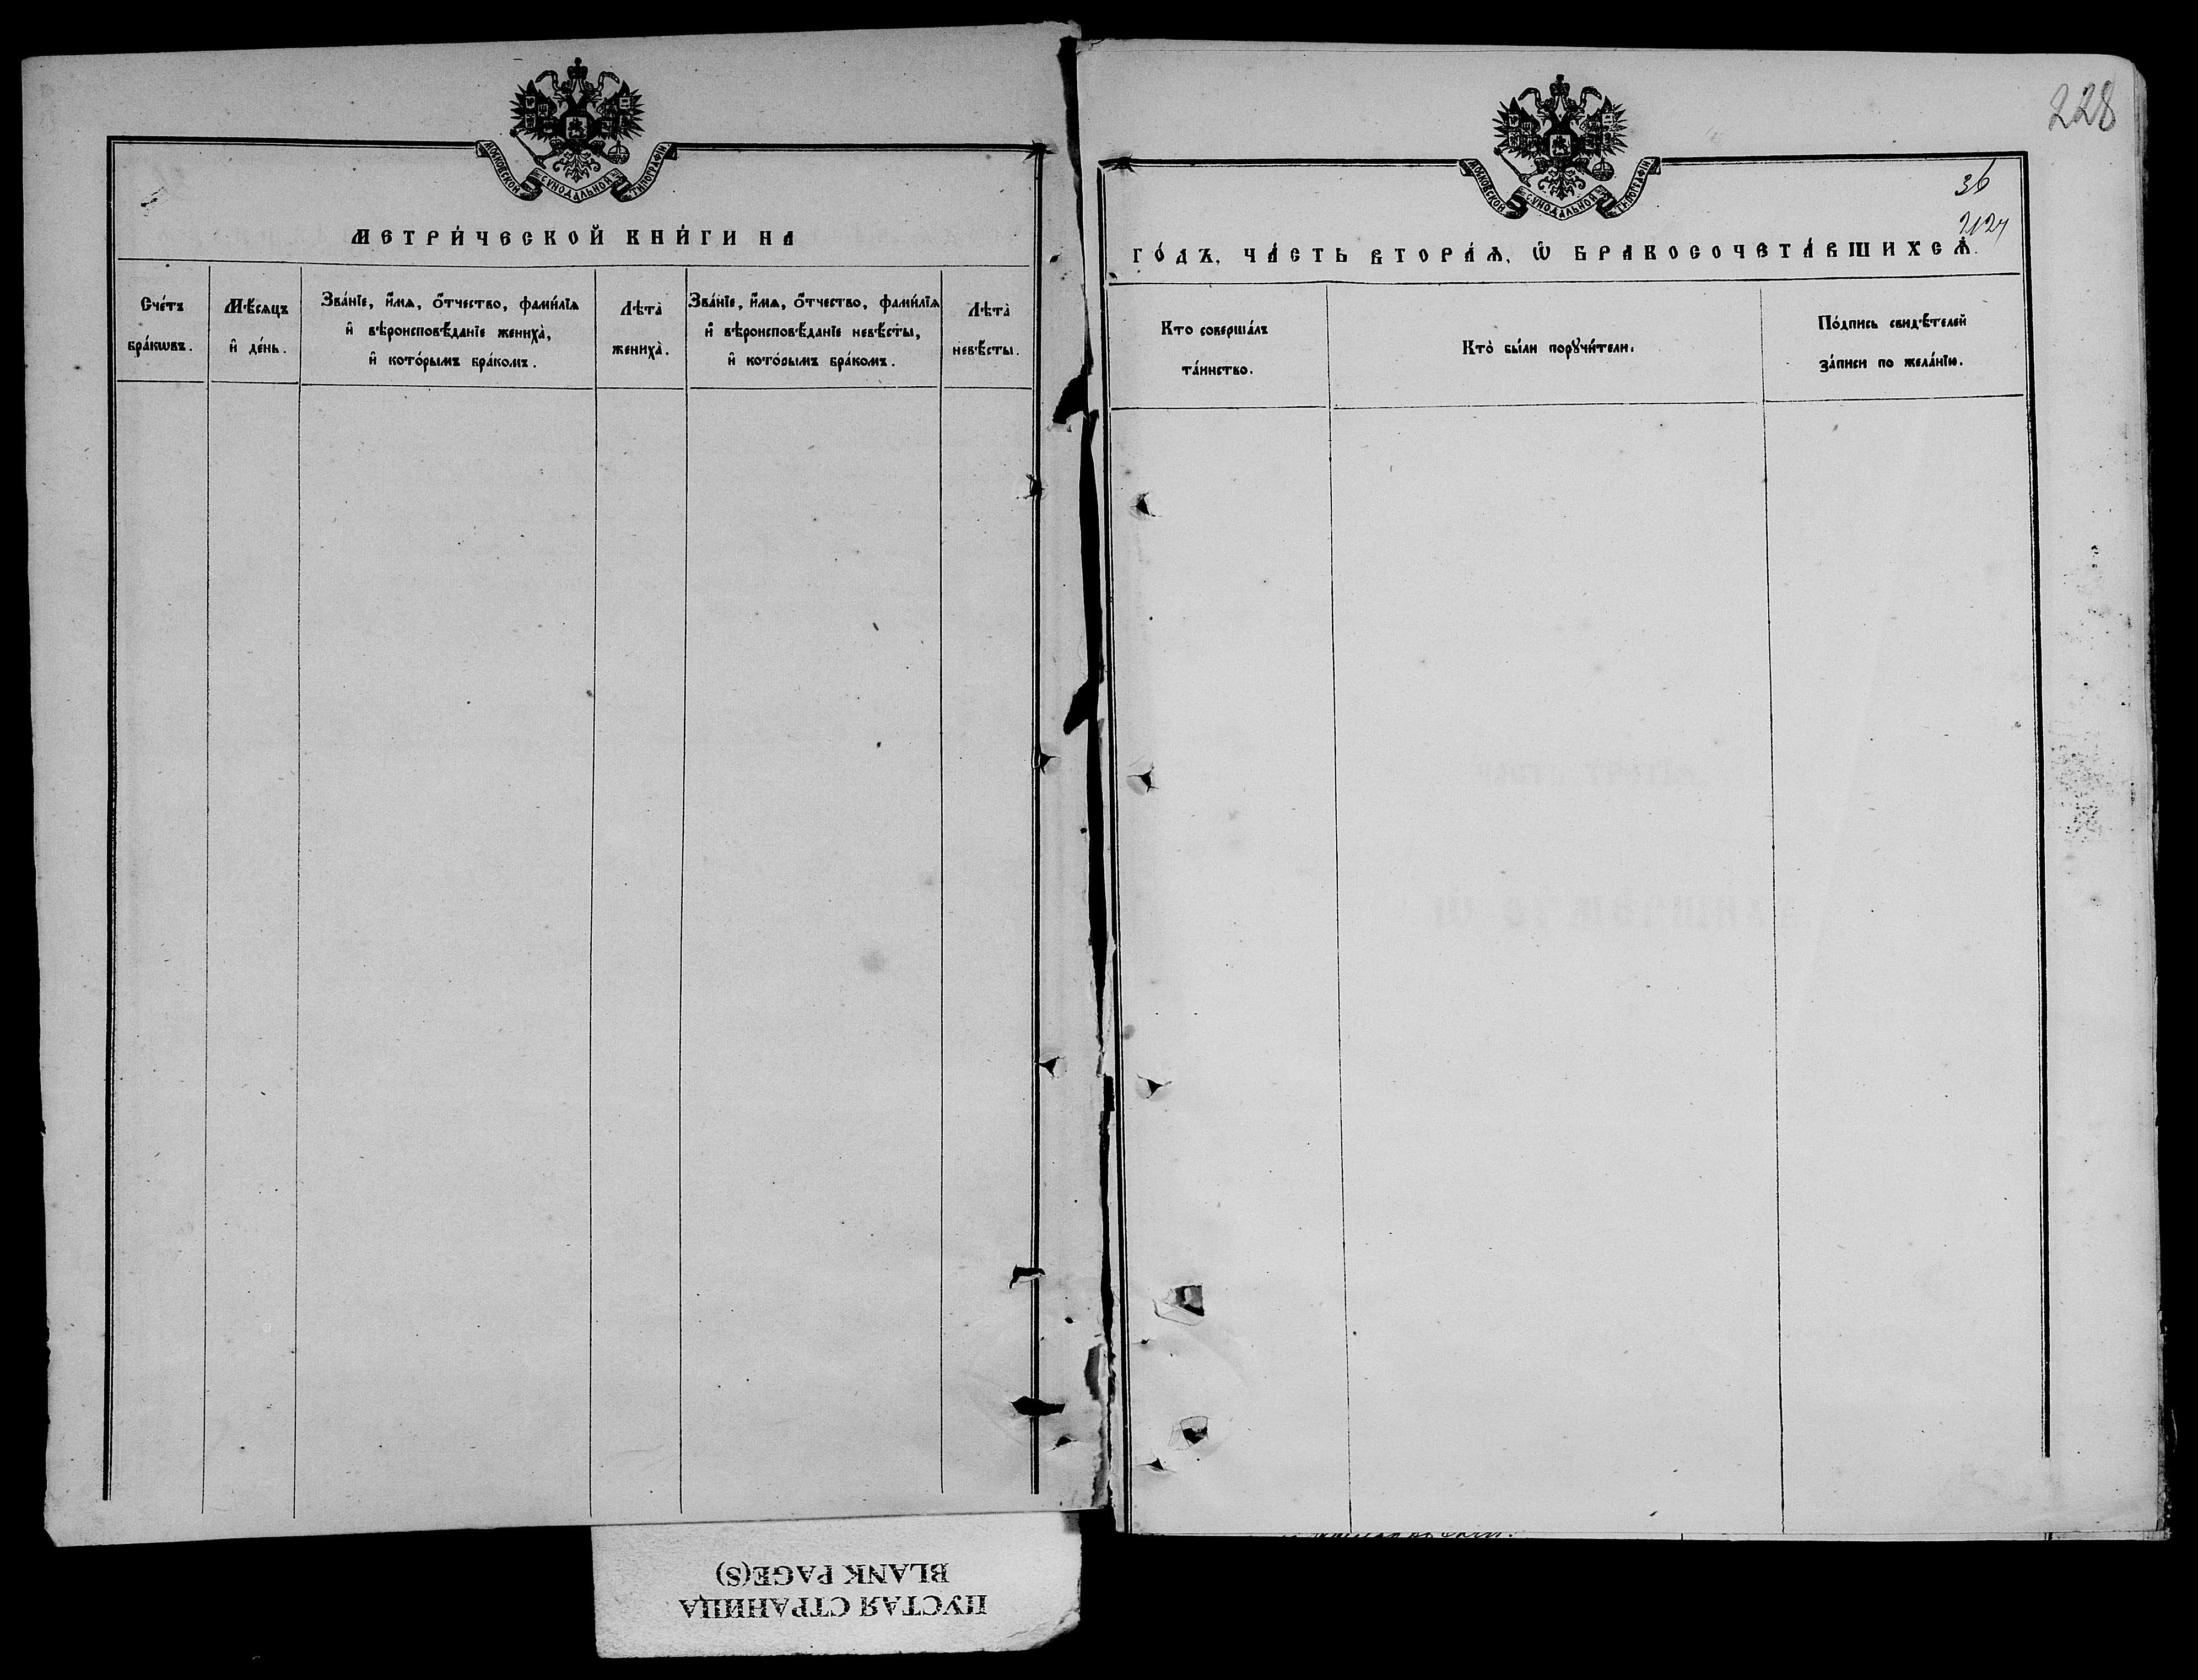 МОСКОВСКОЙ СѴНОДАЛЬНОЙ ТИПОГРАФІИ
МЕТРИ́ЧЕСКОЙ КНИ́ГИ НА
Сче́тъ
бра́кωвъ.
Мѣ́сяцъ
и҆ де́нь.
Зва́нїе, и҆́мѧ, о҆́тчество, фами́лїѧ
и҆ вѣроисповѣ́данїе жениха̀,
и҆ кото́рымъ бра́комъ.
Лѣта̀
жениха̀.
Зва́нїе, и҆́мѧ, о҆́тчество, фами́лїѧ
и҆ вѣроисповѣ́данїе невѣ́сты,
и҆ кото́рымъ бра́комъ.
Лѣта̀
невѣ́сты.
228
МОСКОВСКОЙ СѴНОДАЛЬНОЙ ТИПОГРАФІИ
36
ГО́ДЪ, ЧА́СТЬ ВТОРА́Ѧ, Ѽ БРАКОСОЧЕТА́ВШИХСѦ.
Кто соверша́лъ
та́инство.
Кто̀ бы́ли порꙋчи́тели.
По́дпись свидѣ́телей
за́писи по жела́нїю.
ПУСТАЯ СТРАНИЦА
BLANK PAGE(S)